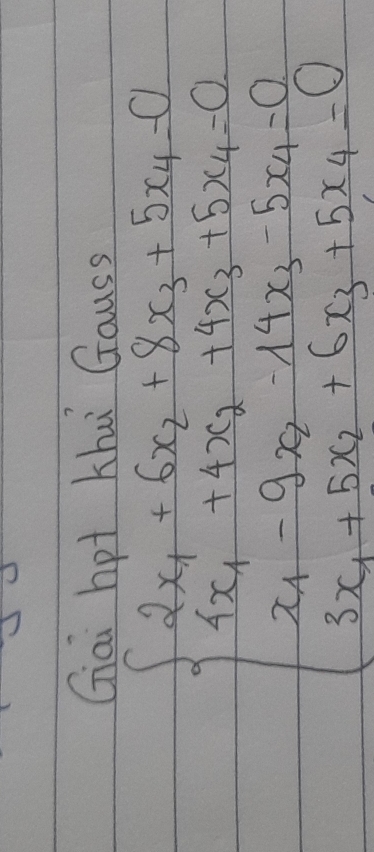 Giải hpt khử Gauss
2x₁ + 6x₂ + 8x₃ + 5x₄ = 0
4x₁ + 4x₂ + 4x₃ + 5x₄ = 0
x₁ - 9x₂ - 14x₃ - 5x₄ = 0
3x₁ + 5x₂ + 6x₃ + 5x₄ = 0